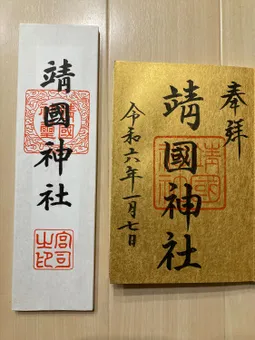 奉拝
靖國神社
令和六年一月七日
靖國神社
宮司之印